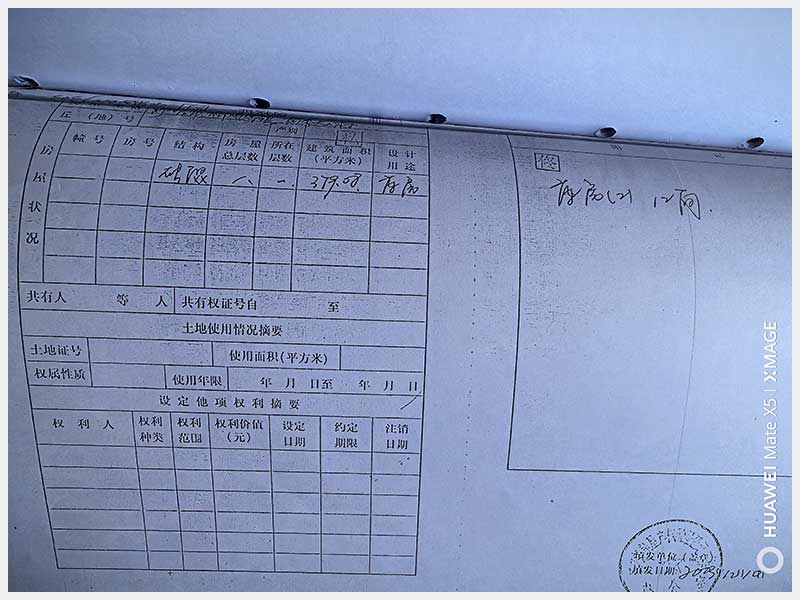 丘（地）号 产别
房屋状况
幢号 房号 结构 房屋总层数 所在层数 建筑面积（平方米） 设计用途
砖混 一 379.08 库房
共有人 等 人 共有权证号自 至
土地使用情况摘要
土地证号 使用面积（平方米）
权属性质 使用年限 年 月 日至 年 月 日
设定他项权利摘要
权利人 权利种类 权利范围 权利价值（元） 设定日期 约定期限 注销日期
库房(2) 12间.
填发单位（盖章）
填发日期
HUAWEI Mate X5 | XMAGE